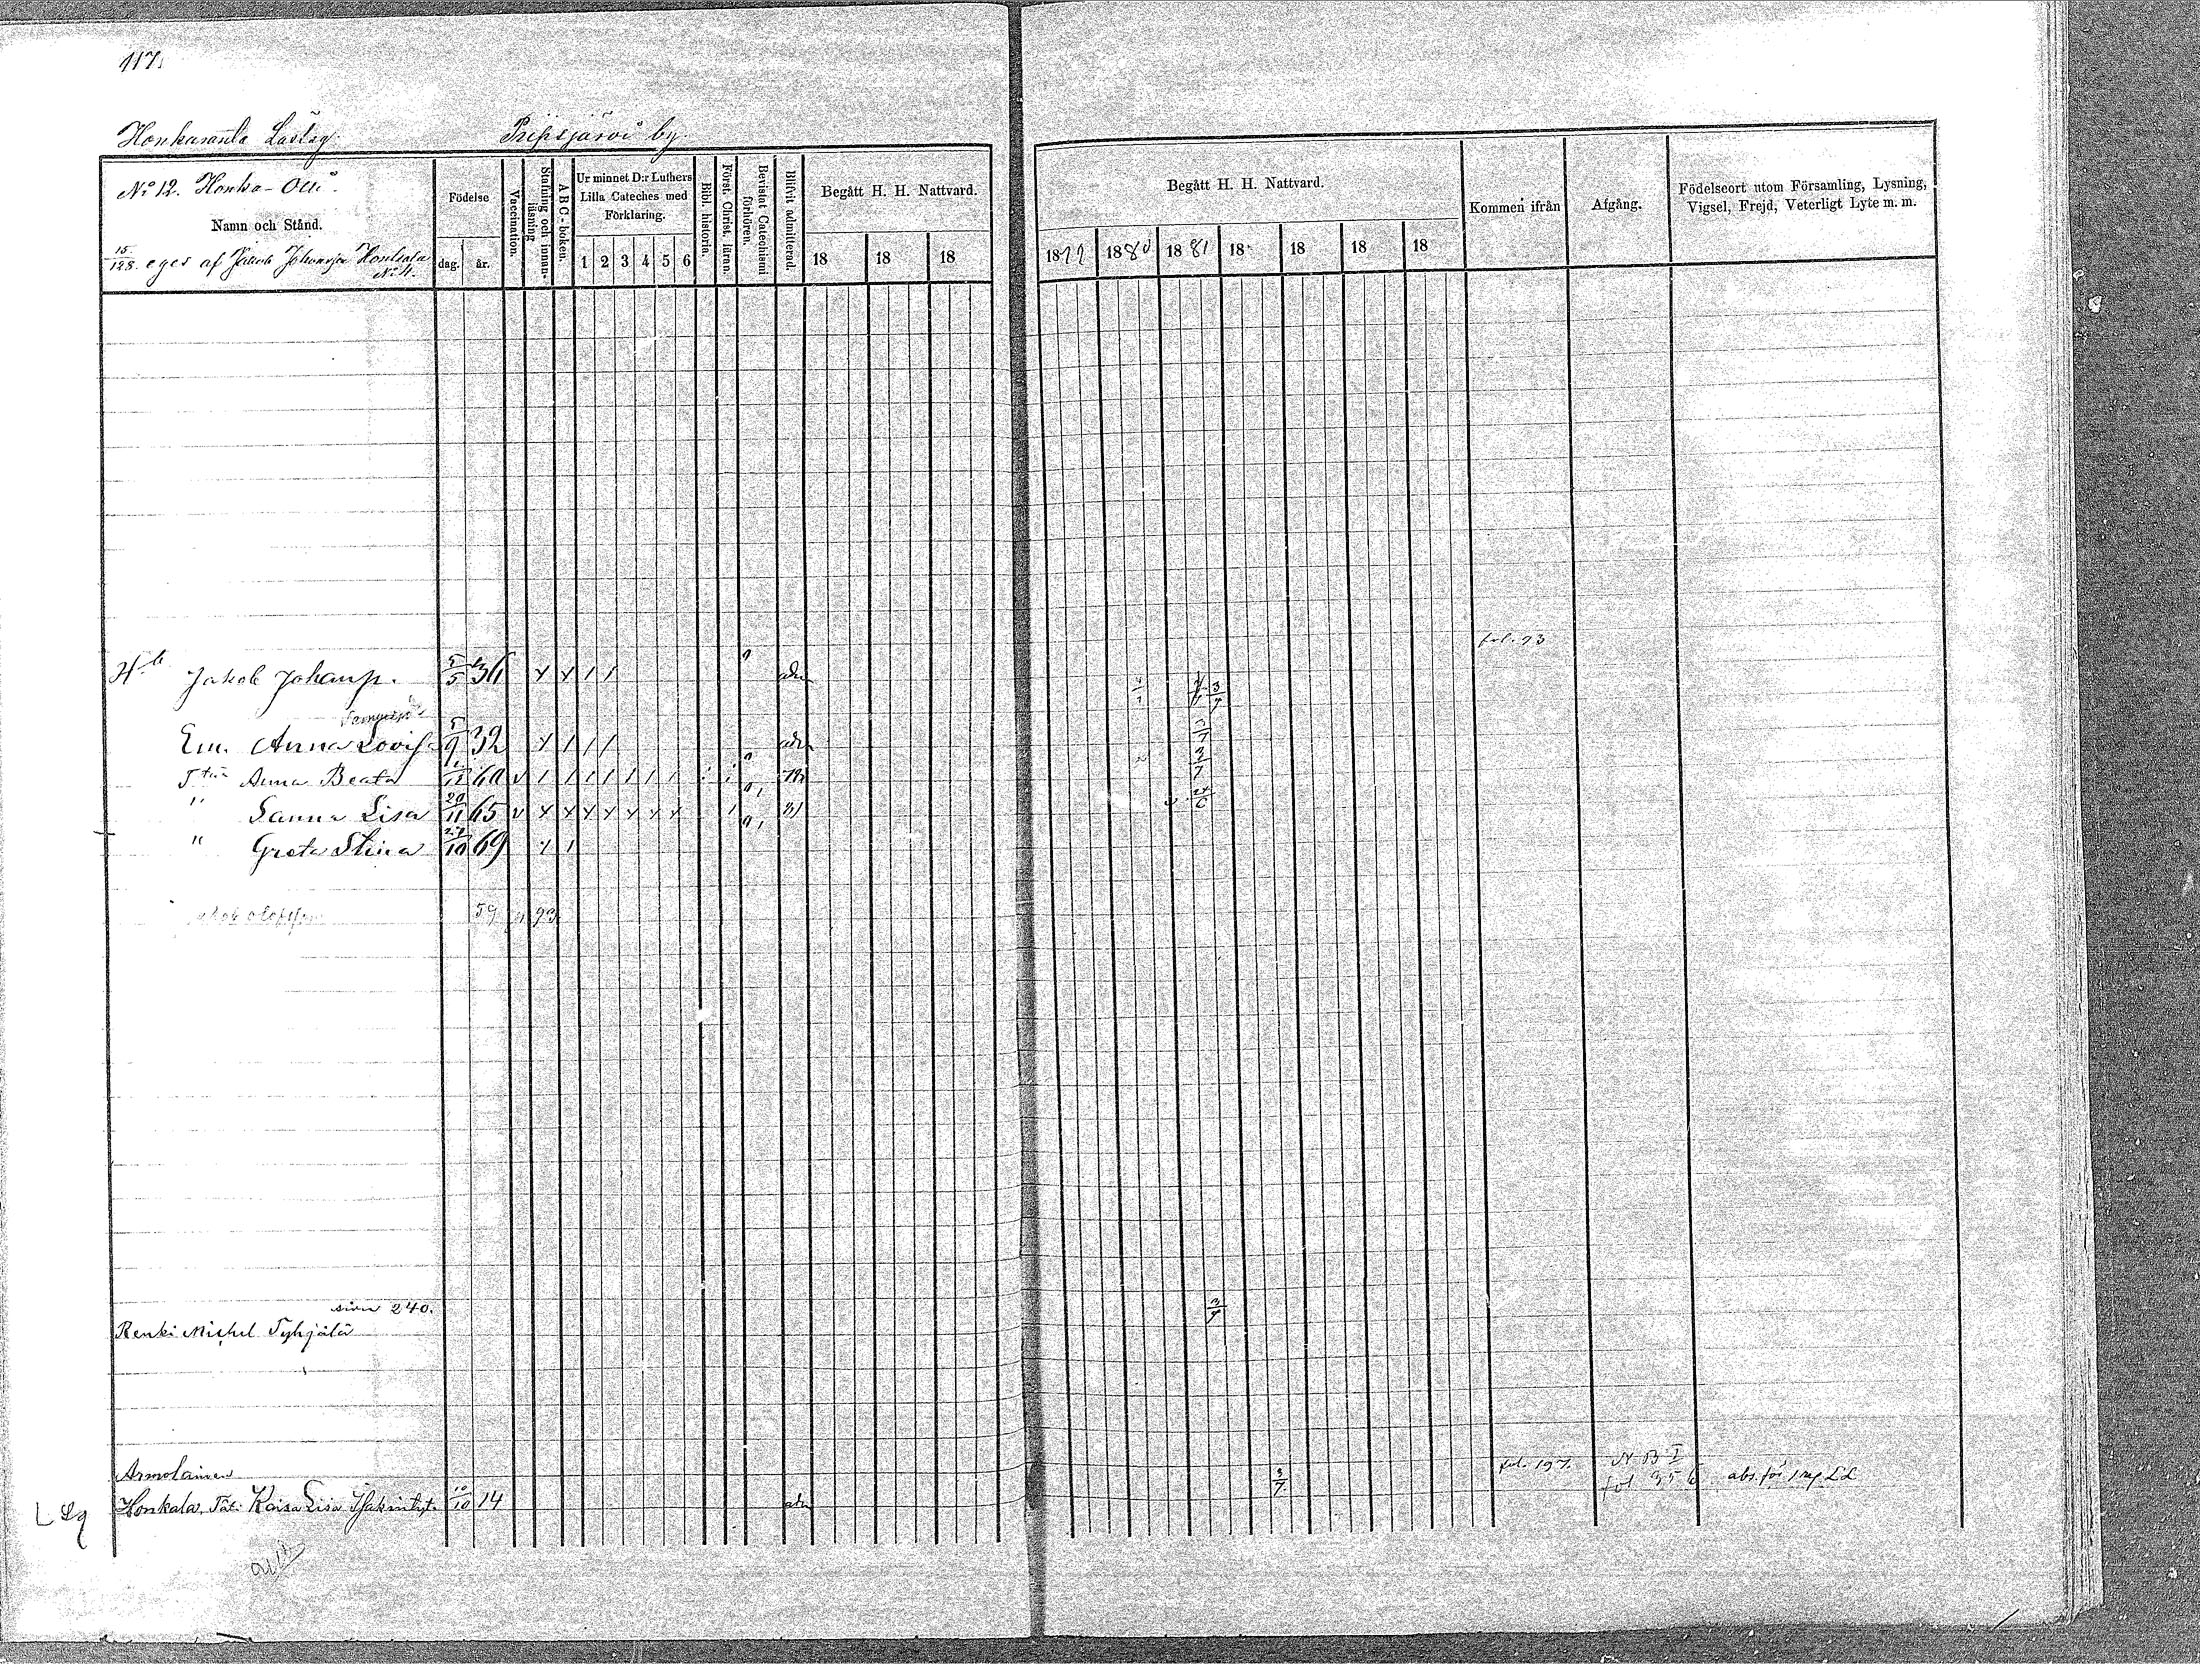 117.
Honkaranta Lästag. by.
No 12. Honka-Olli.
Namn och Stånd.
15/128. eges af Jakob Johansson Honkala No 4.
Födelse
dag. år.
Vaccination.
Stafning och innanläsning
ABC-boken.
Ur minnet D:r Luthers Lilla Cateches med Förklaring.
1 2 3 4 5 6
Bibl. historia.
Först. Christ. läran.
Bevistat Catechismi förhören.
Blifvit admitterad.
Begått H. H. Nattvard.
18 18 18
Begått H. H. Nattvard.
1879 1880 1881 18 18 18 18
Kommen ifrån
Afgång.
Födelseort utom Församling, Lysning, Vigsel, Frejd, Veterligt Lyte m. m.
fol. 93
Jakob Johanss. 5/5 36 adm 3/7
Anna Lovisa 5/9 32 adm 3/7
Anna Beata 60 3/7
" Sanna Lisa 20/11 65 v 81 24/6
" Greta Stina 27/10 69
59 93
sivu 240. 3/7
Renki Michel Tyhjälä
Armolainen fol. 197. N B I
Honkala, Kaisa Lisa 10/10 14 adm 3/7 fol 356 abs. för
L Lg